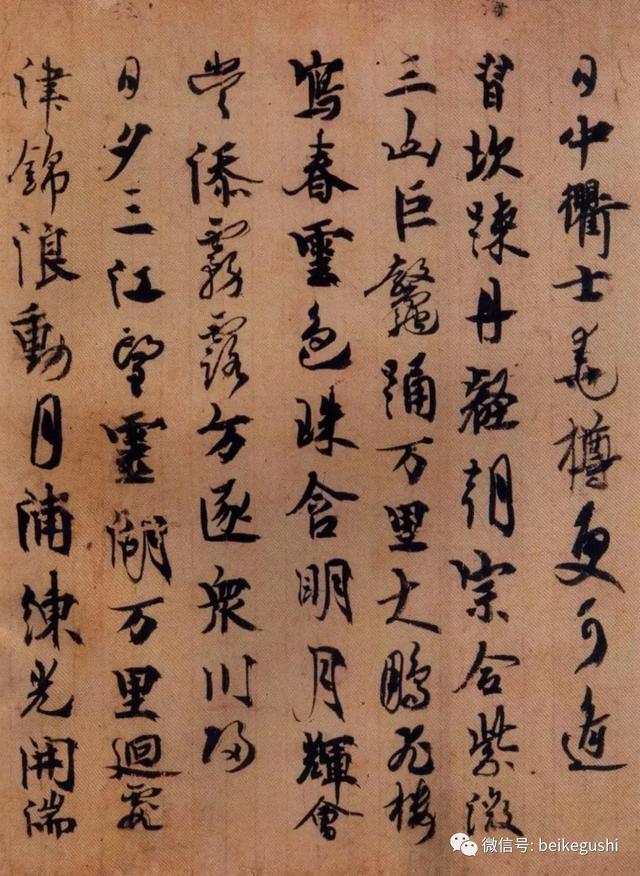 日中衢士堯樽更可逢
習坎疎丹壑朝宗合紫微
三山巨鼇踊万里大鵬飛樓
寫春雲色珠含明月輝會
當添霧露方逐衆川歸
日夕三江望靈潮万里迴霞
津錦浪動月浦練光開湍
微信号: beikegushi